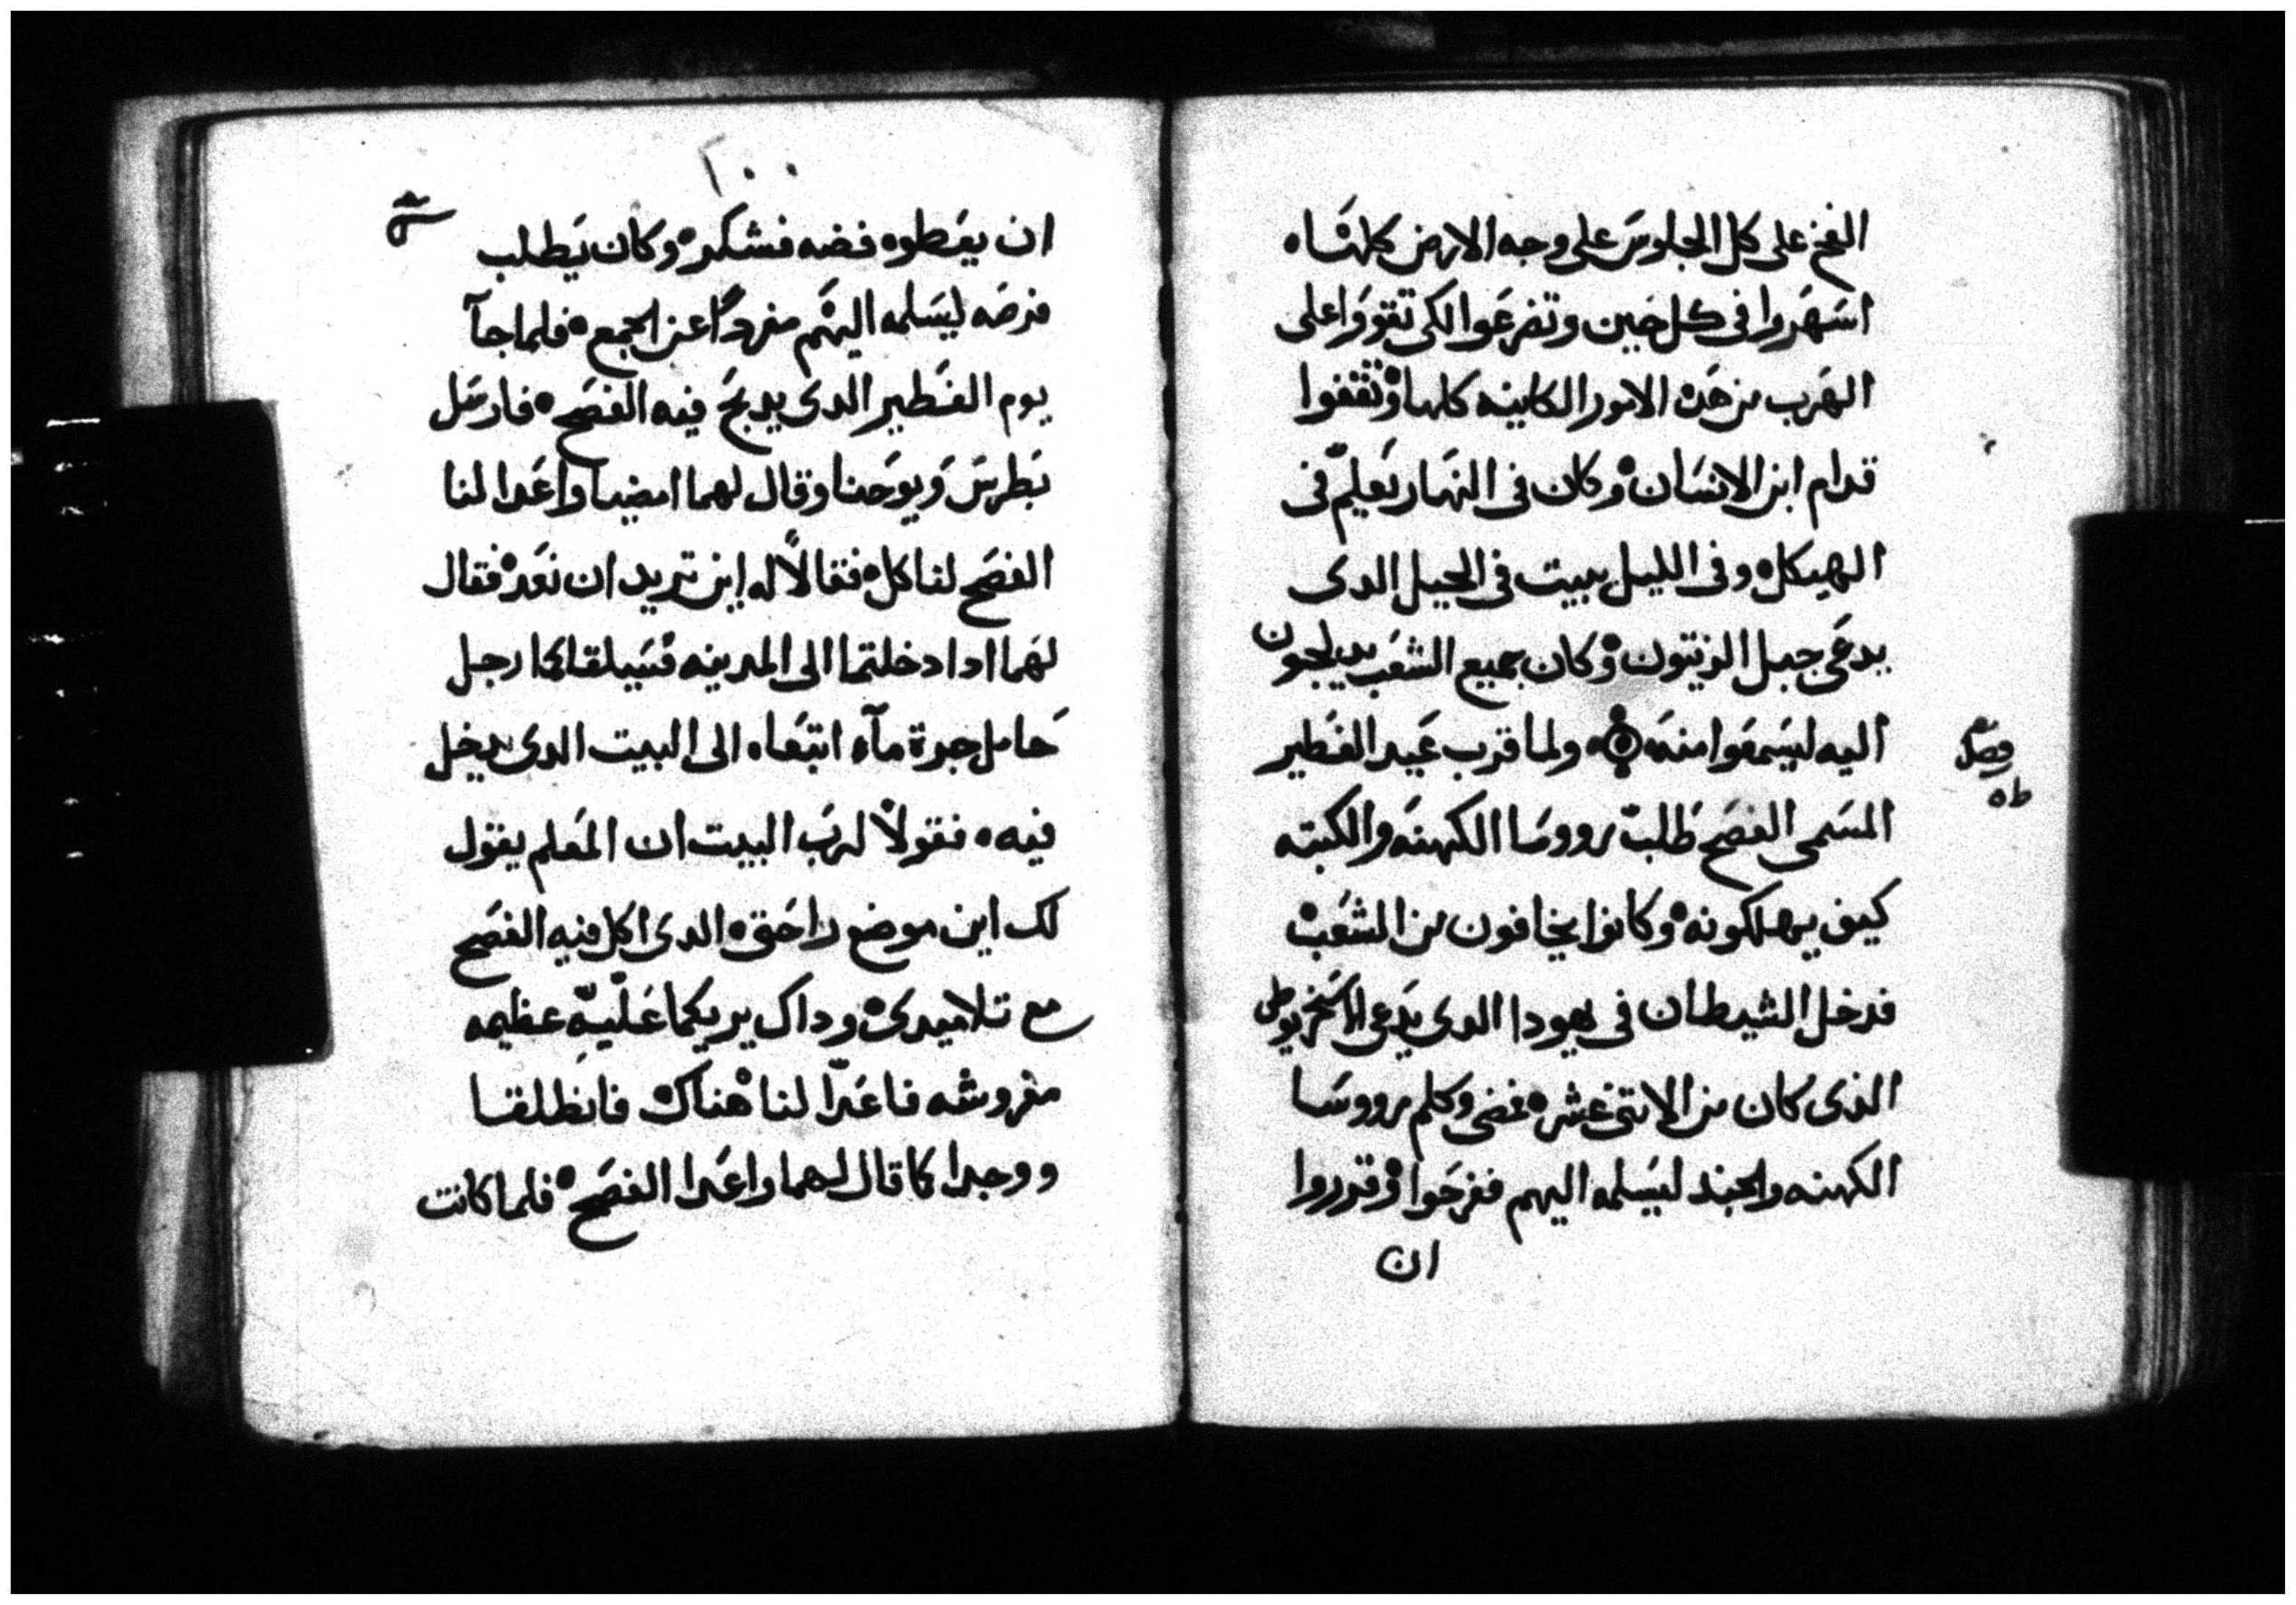 الفخ على كل الجلوس على وجه الارض كلها ه
اسهروا في كل حين وتضرعوا لكي تقووا على
الهرب من هذه الامور الكاينه كلها ه وتقفوا
قدام ابن الانسان ه وكان في النهار يعلم في
الهيكل ه وفي الليل يبيت في الجبل الدى
يدعى جبل الزيتون ه وكان جميع الشعب يدلجون
اليه ليسمعوا منه ه ولما قرب عيد الفطير
فصل
المسمى الفصح طلب رووسا الكهنه والكتبه
كيف يهلكونه ه وكانوا يخافون من الشعب ه
فدخل الشيطان في يهودا الدى يدعى الاسخريوطى
الذى كان من الاتنى عشر ه فمضى وكلم رووسا
الكهنه والجند ليسلمه اليهم ففرحوا ه وقدروا
ان
ان يعطوه فضه فشكر ه وكان يطلب
فرصه ليسلمه اليهم مفردًا عن الجمع ه فلما جآ
يوم الفطير الدى يدبح فيه الفصح ه فارسل
بطرس ويوحنا وقال لهما امضيا واعدا لنا
الفصح لناكل ه فقالا له اين تريد ان نعد ه فقال
لهما ادا دخلتما الى المدينه فسيلقاكما رجل
حامل جرة مآء اتبعاه الى البيت الدى يدخل
فيه ه فقولا لرب البيت ان المعلم يقول
لك اين موضع راحتى ه الدى اكل فيه الفصح
مع تلاميدى ه وداك يريكما عليّه عظيمه
مفروشه فاعدّا لنا هناك ه فانطلقا
ووجدا كما قال لهما واعدا الفصح ه فلما كانت